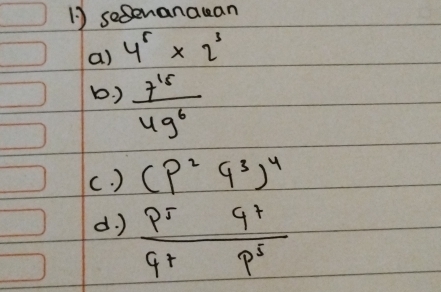 1.) sederhanakan
a) 4⁵ × 2³
b.) 7¹⁵
49⁶
c.) (p² q³)⁴
d.) p⁵ q⁷
q⁷ p⁵